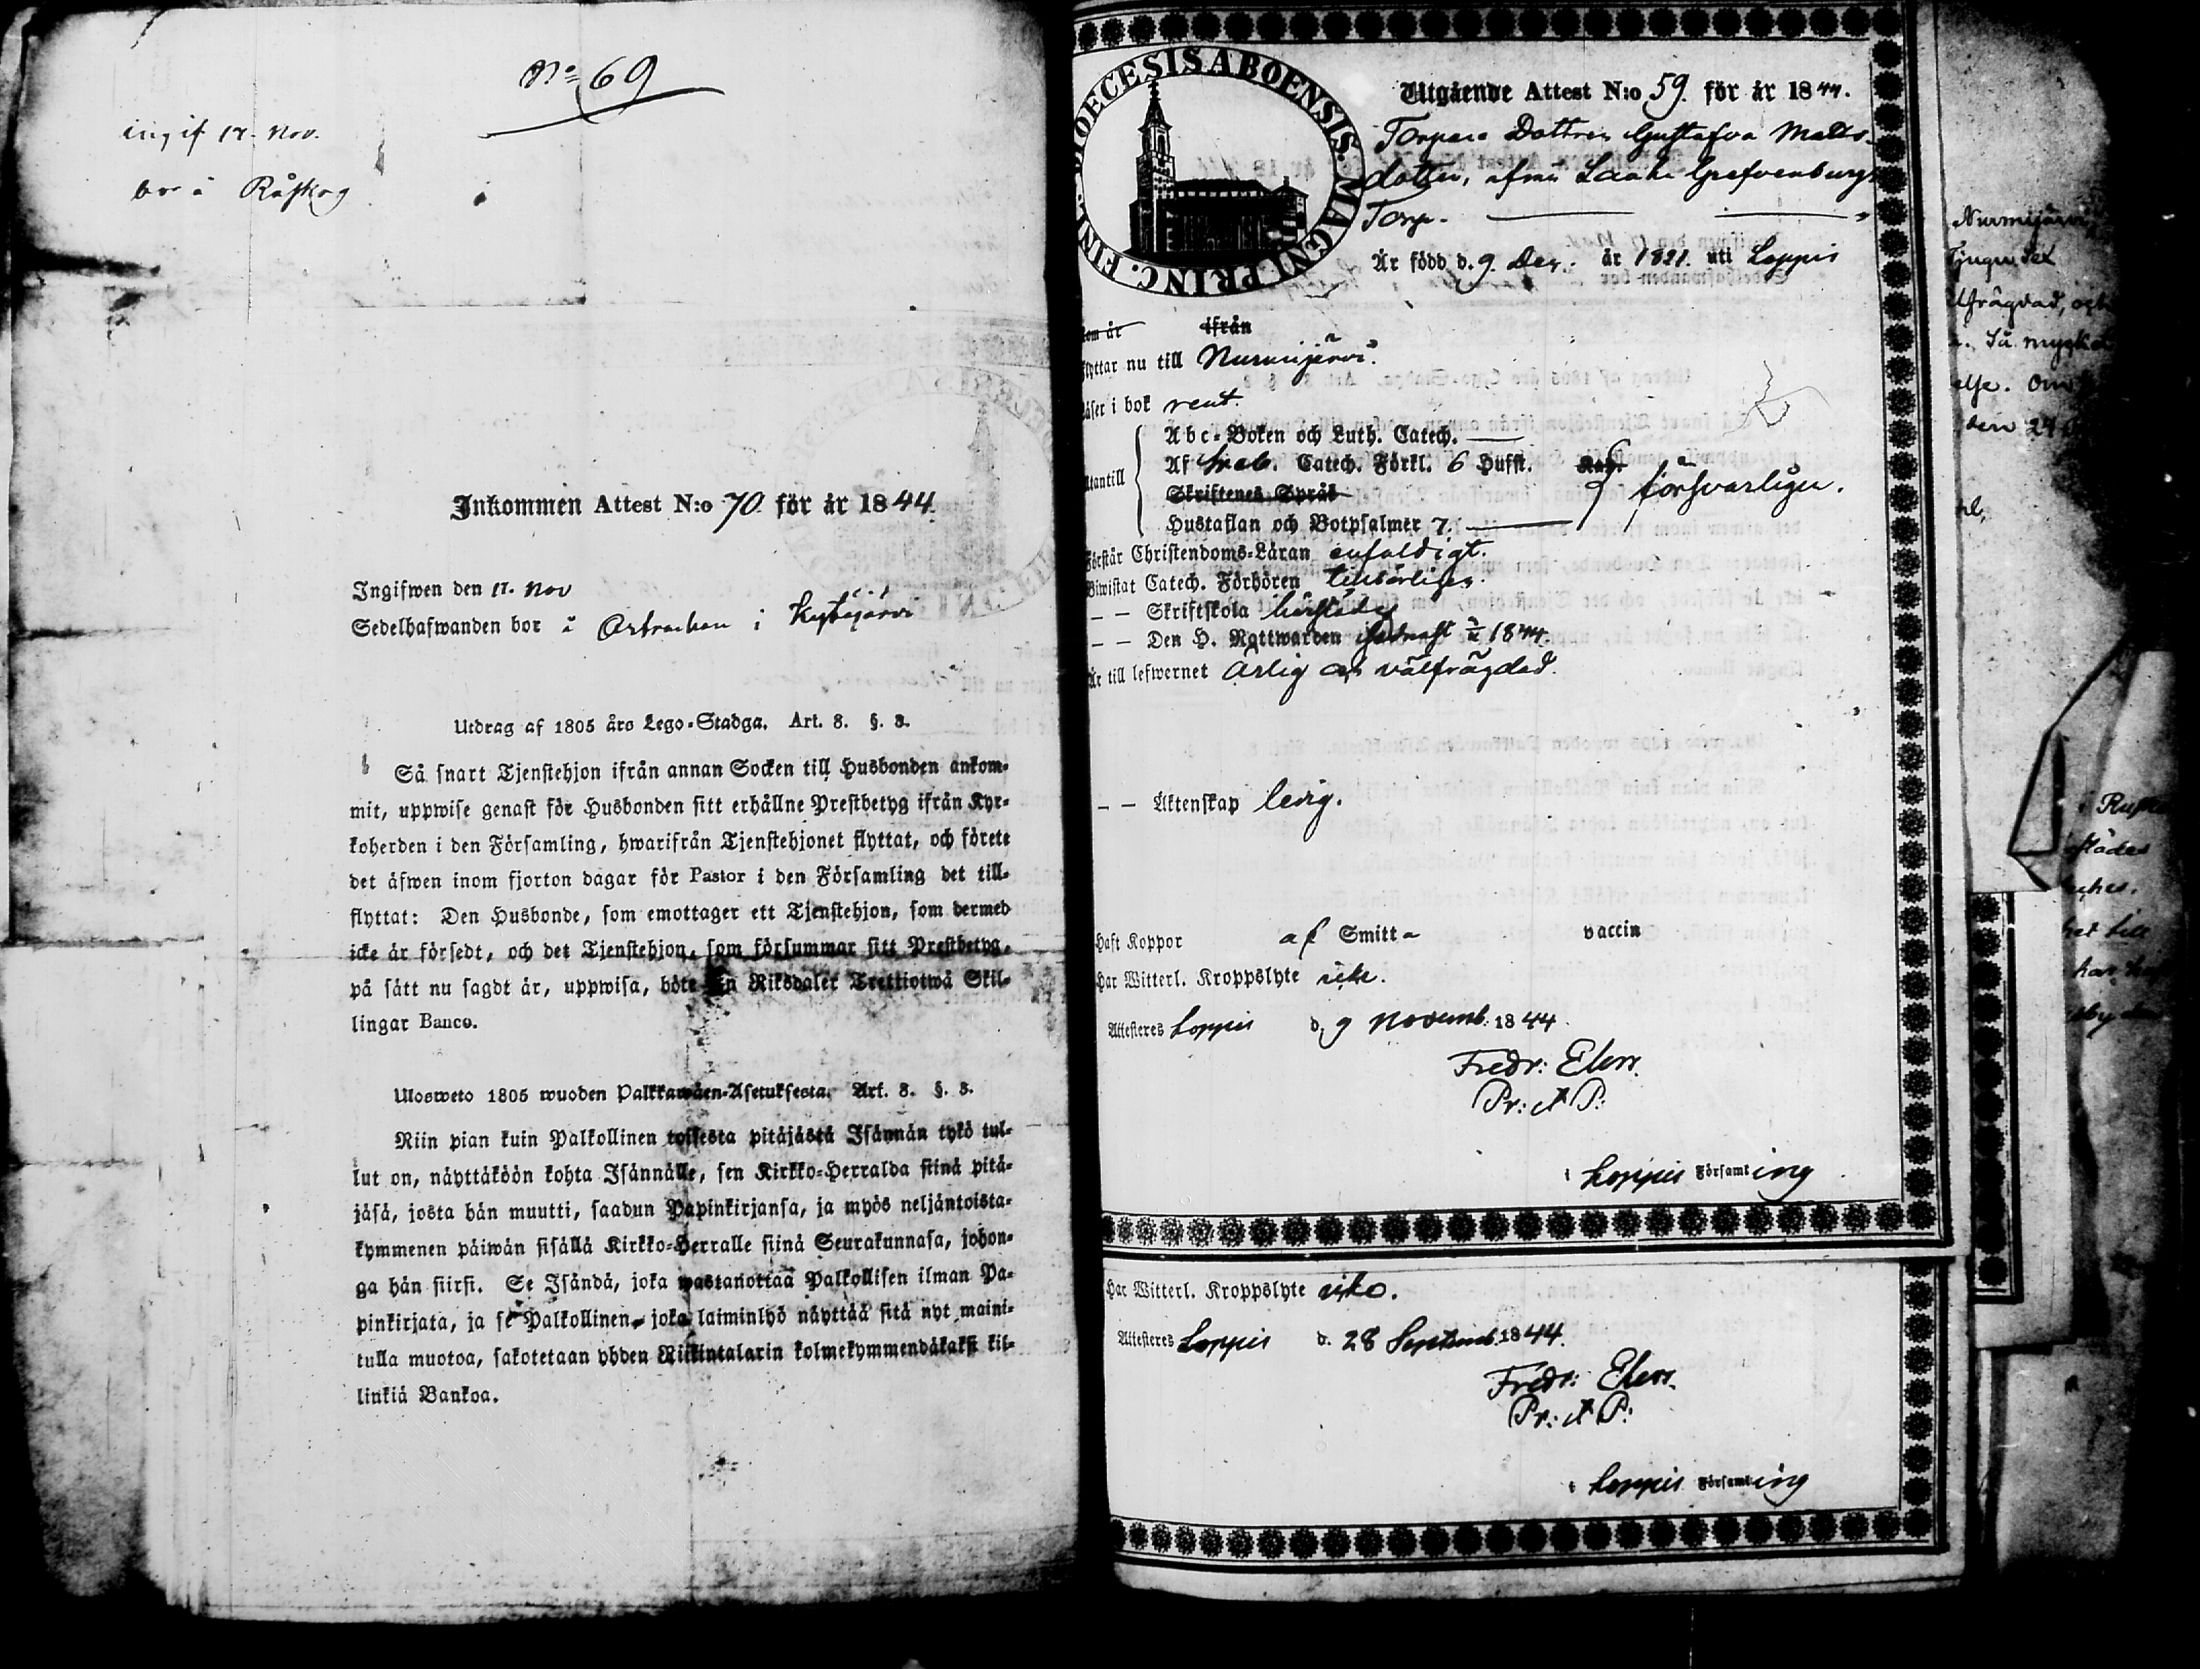 No 69
ingif 17. Nov.
bor å Råskog
Inkommen Attest N:o 70 för år 1844.
Ingifwen den 17. Nov
Sedelhafwanden bor å i Kytäjärvi
Utdrag af 1805 åro Lego-Stadga. Art. 8. §. 3.
Så snart Tjenstehjon ifrån annan Socken till Husbonden ankom-
mit, uppwise genast för Husbonden sitt erhållne Prestbetyg ifrån Kyr-
koherden i den Församling, hwarifrån Tjenstehjonet flyttat, och förete
det äfwen inom fjorton dagar för Pastor i den Församling det till-
flyttat: Den Husbonde, som emottager ett Tjenstehjon, som dermed
icke är försedt, och det Tjenstehjon, som försummar sitt Prestbetyg,
på sätt nu sagdt är, uppwisa, böte En Riksdaler Trettiotwå Skil-
lingar Banco.
Ulosweto 1805 wuoden Palkkawäen-Asetuksesta. Art. 8. §. 3.
Niin pian kuin Palkollinen toisesta pitäjästä Isännän tykö tul-
lut on, näyttäköön kohta Isännälle, sen Kirkko-Herralda siinä pitä-
jäsä, josta hän muutti, saadun Papinkirjansa, ja myös neljäntoista-
kymmenen päiwän sisällä Kirkko-Herralle siinä Seurakunnasa, johon-
ga hän siirsi. Se Isändä, joka wastanottaa Palkollisen ilman Pa-
pinkirjata, ja se Palkollinen, joka laiminlyö näyttää sitä nyt maini-
tulla muotoa, sakotetaan yhden Riikintalarin kolmekymmendäkaksi kil-
linkiä Bankoa.
DIOECESIS ABOENSIS. MAGNI PRINC. FINL.
Utgående Attest N:o 59. för år 1844.
Torpare Dottren Gustafva Matts-
dotter, ifrån Grefvenburgs
Torp.
Är född d. 9. Dec. år 1821. uti Loppis
kom år ifrån
flyttar nu till Nurmijärvi.
Läser i bok rent.
Utantill
Abc-Boken och Luth. Catech.
Af Catech. Förkl. 6 Hufst.
Skriftenes Språk
Hustaflan och Botpsalmer 7.
försvarligen.
Förstår Christendoms-Läran enfaldigt.
Biwistat Catech. Förhören tillbörligen.
– – Skriftskola härstädes
– – Den H. Nattwarden 1844.
Är till lefwernet Ärlig och välfrägdad.
– – Äktenskap ledig.
Haft Koppor af Smitta vaccin
Har Witterl. Kroppslyte icke.
Attesteres Loppis d. 9 Novemb. 1844.
Fredr: Elers.
Pr: et P:
i Loppis Församling
Har Witterl. Kroppslyte icke.
Attesteres Loppis d. 28 Septemb. 1844.
Fredr: Elers.
Pr: et P:
i Loppis Församling
Nurmijärvi
Så mycket